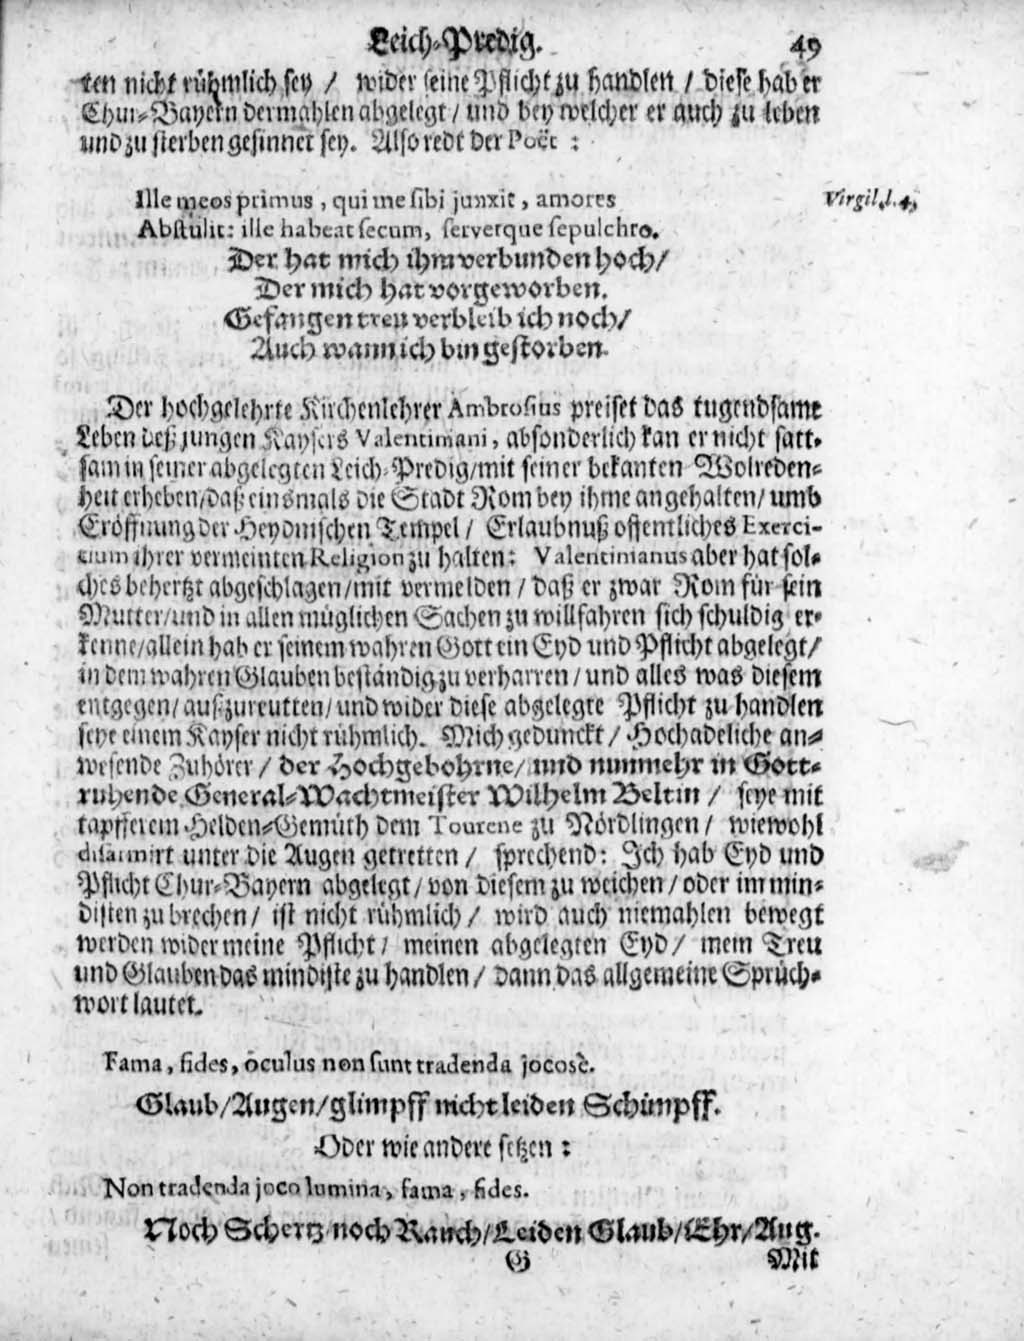 Leich-Predig. 49
ten nicht rühmlich sey / wider seine Pflicht zu handlen / diese hab er
Chur-Bayern dermahlen abgelegt / und bey welcher er auch zu leben
und zu sterben gesinnet sey. Also redt der Poët :
Ille meos primus, qui me sibi junxit, amores
Virgil. l. 4.
Abstulit: ille habeat secum, servetque sepulchro.
Der hat mich ihm verbunden hoch/
Der mich hat vorgeworben.
Gefangen treu verbleib ich noch/
Auch wann ich bin gestorben.
Der hochgelehrte Kirchenlehrer Ambrosius preiset das tugendsame
Leben deß jungen Kaysers Valentiniani, absonderlich kan er nicht satt-
sam in seiner abgelegten Leich-Predig/mit seiner bekanten Wolreden-
heit erheben/daß einsmals die Stadt Rom bey ihme angehalten/ umb
Eröffnung der Heydnischen Tempel/ Erlaubnuß offentliches Exerci-
tium ihrer vermeinten Religion zu halten: Valentinianus aber hat sol-
ches behertzt abgeschlagen/mit vermelden / daß er zwar Rom für sein
Mutter/und in allen müglichen Sachen zu willfahren sich schuldig er-
kenne/allein hab er seinem wahren Gott ein Eyd und Pflicht abgelegt/
in dem wahren Glauben beständig zu verharren / und alles was diesem
entgegen/ außzureutten/ und wider diese abgelegte Pflicht zu handlen
seye einem Kayser nicht rühmlich. Mich gedunckt / Hochadeliche an-
wesende Zuhörer / der Hochgebohrne/ und nunmehr in Gott-
ruhende General-Wachtmeister Wilhelm Beltin / seye mit
tapfferem Helden-Gemüth dem Tourene zu Nördlingen / wiewohl
disarmirt unter die Augen getretten / sprechend: Ich hab Eyd und
Pflicht Chur-Bayern abgelegt / von diesem zu weichen / oder im min-
disten zu brechen / ist nicht rühmlich / wird auch niemahlen bewegt
werden wider meine Pflicht / meinen abgelegten Eyd / mein Treu
und Glauben das mindiste zu handlen / dann das allgemeine Sprüch-
wort lautet.
Fama, fides, oculus non sunt tradenda jocosè.
Glaub/Augen/glimpff nicht leiden Schimpff.
Oder wie andere setzen :
Non tradenda joco lumina, fama, fides.
Noch Schertz noch Rauch/Leiden Glaub/Ehr/Aug.
G Mit